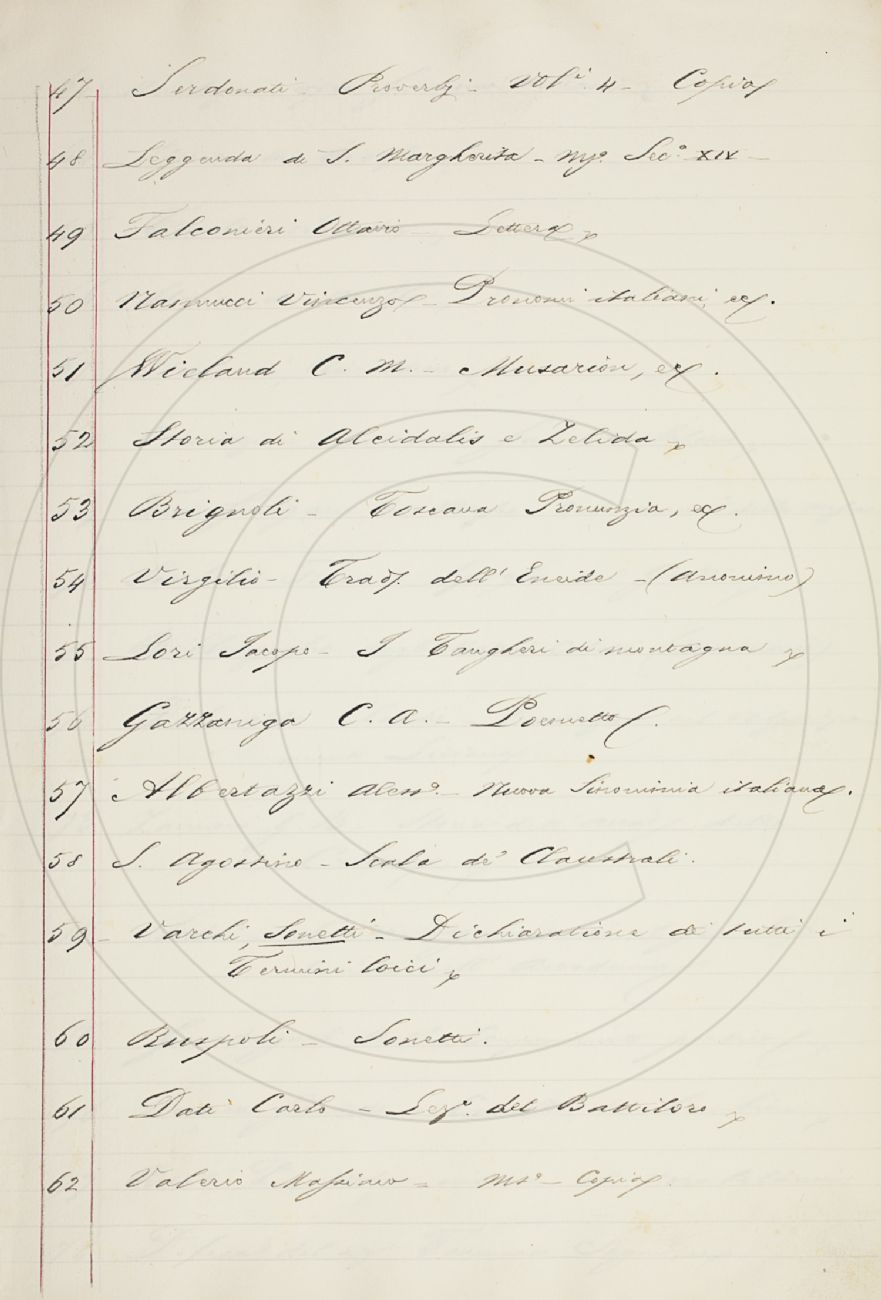 47 Serdonati - Proverbj - Vol.i 4 - Copia
48 Leggenda di S. Margherita - Mso. Sec.o XIV -
49 Falconieri Ottavio - Lettera
50 Nannucci Vincenzo - Pronomi italiani, ec.
51 Wieland C. M. - Musarion, ec.
52 Storia di Alcidalis e Zelida
53 Brignoli - Toscana Pronunzia, ec.
54 Virgilio - Trad. dell' Eneide - (Anonimo)
55 Lori Jacopo - I Tangheri di montagna
56 Gazzaniga C. A. - Poemetto.
57 Albertazzi Aless.o - Nuova Sinonimia italiana.
58 S. Agostino - Scala de' Claustrali.
59 - Varchi, Sonetti - Dichiaratione di tutti i
Termini loici
60 Ruspoli - Sonetti.
61 Dati Carlo - Lez.e del Battiloro
62 Valerio Massimo - Ms.o - Copia